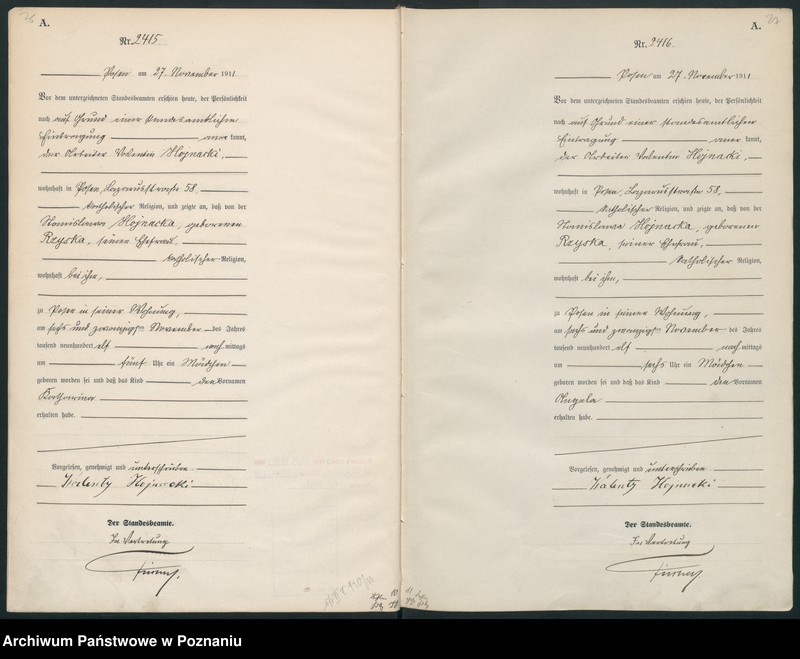 A.
Nr. 2415
Posen am 27. November 1911
Vor dem unterzeichneten Standesbeamten erschien heute, der Persönlichkeit
nach auf Grund einer standesamtlichen
Eintragung anerkannt,
der Arbeiter Valentin Hojnacki,
wohnhaft in Posen, Lazarusstraße 58,
katholischer Religion, und zeigte an, daß von der
Stanislawa Hojnacka, geborenen
Rzyska, seiner Ehefrau,
katholischer Religion,
wohnhaft bei ihm,
zu Posen in seiner Wohnung,
am sechs und zwanzigsten November des Jahres
tausend neunhundert elf nachmittags
um fünf Uhr ein Mädchen
geboren worden sei und daß das Kind den Vornamen
Katharina
erhalten habe.
Vorgelesen, genehmigt und unterschrieben
Walenty Hojnacki
Der Standesbeamte.
In Vertretung
A.
Nr. 2416
Posen am 27. November 1911
Vor dem unterzeichneten Standesbeamten erschien heute, der Persönlichkeit
nach auf Grund einer standesamtlichen
Eintragung anerkannt,
der Arbeiter Valentin Hojnacki,
wohnhaft in Posen, Lazarusstraße 58,
katholischer Religion, und zeigte an, daß von der
Stanislawa Hojnacka, geborenen
Rzyska, seiner Ehefrau,
katholischer Religion,
wohnhaft bei ihm,
zu Posen in seiner Wohnung,
am sechs und zwanzigsten November des Jahres
tausend neunhundert elf nachmittags
um sechs Uhr ein Mädchen
geboren worden sei und daß das Kind den Vornamen
Angela
erhalten habe.
Vorgelesen, genehmigt und unterschrieben
Walenty Hojnacki
Der Standesbeamte.
In Vertretung
Archiwum Państwowe w Poznaniu